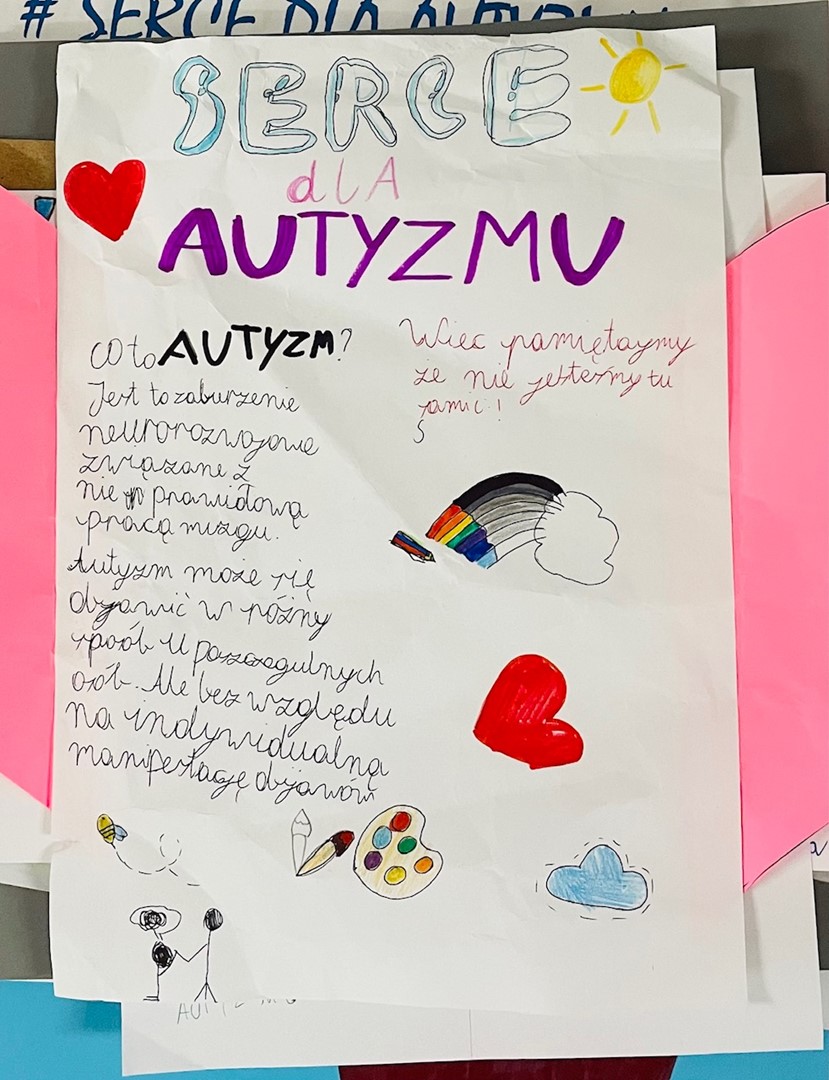 # SERCE DLA AUTYZMU
SERCE
dlA
AUTYZMU
CO to AUTYZM?
Jest to zaburzenie
neurorozwojowe
związane z
nie prawidłową
pracą mózgu.
Autyzm może się
objawić w różny
spoób U poszczegulnych
osób. Ale bez względu
na indywidualną
manifestację objawów
Wiec pamiętajmy
że nie jesteśmy tu
sami!
S
AUTYZMU